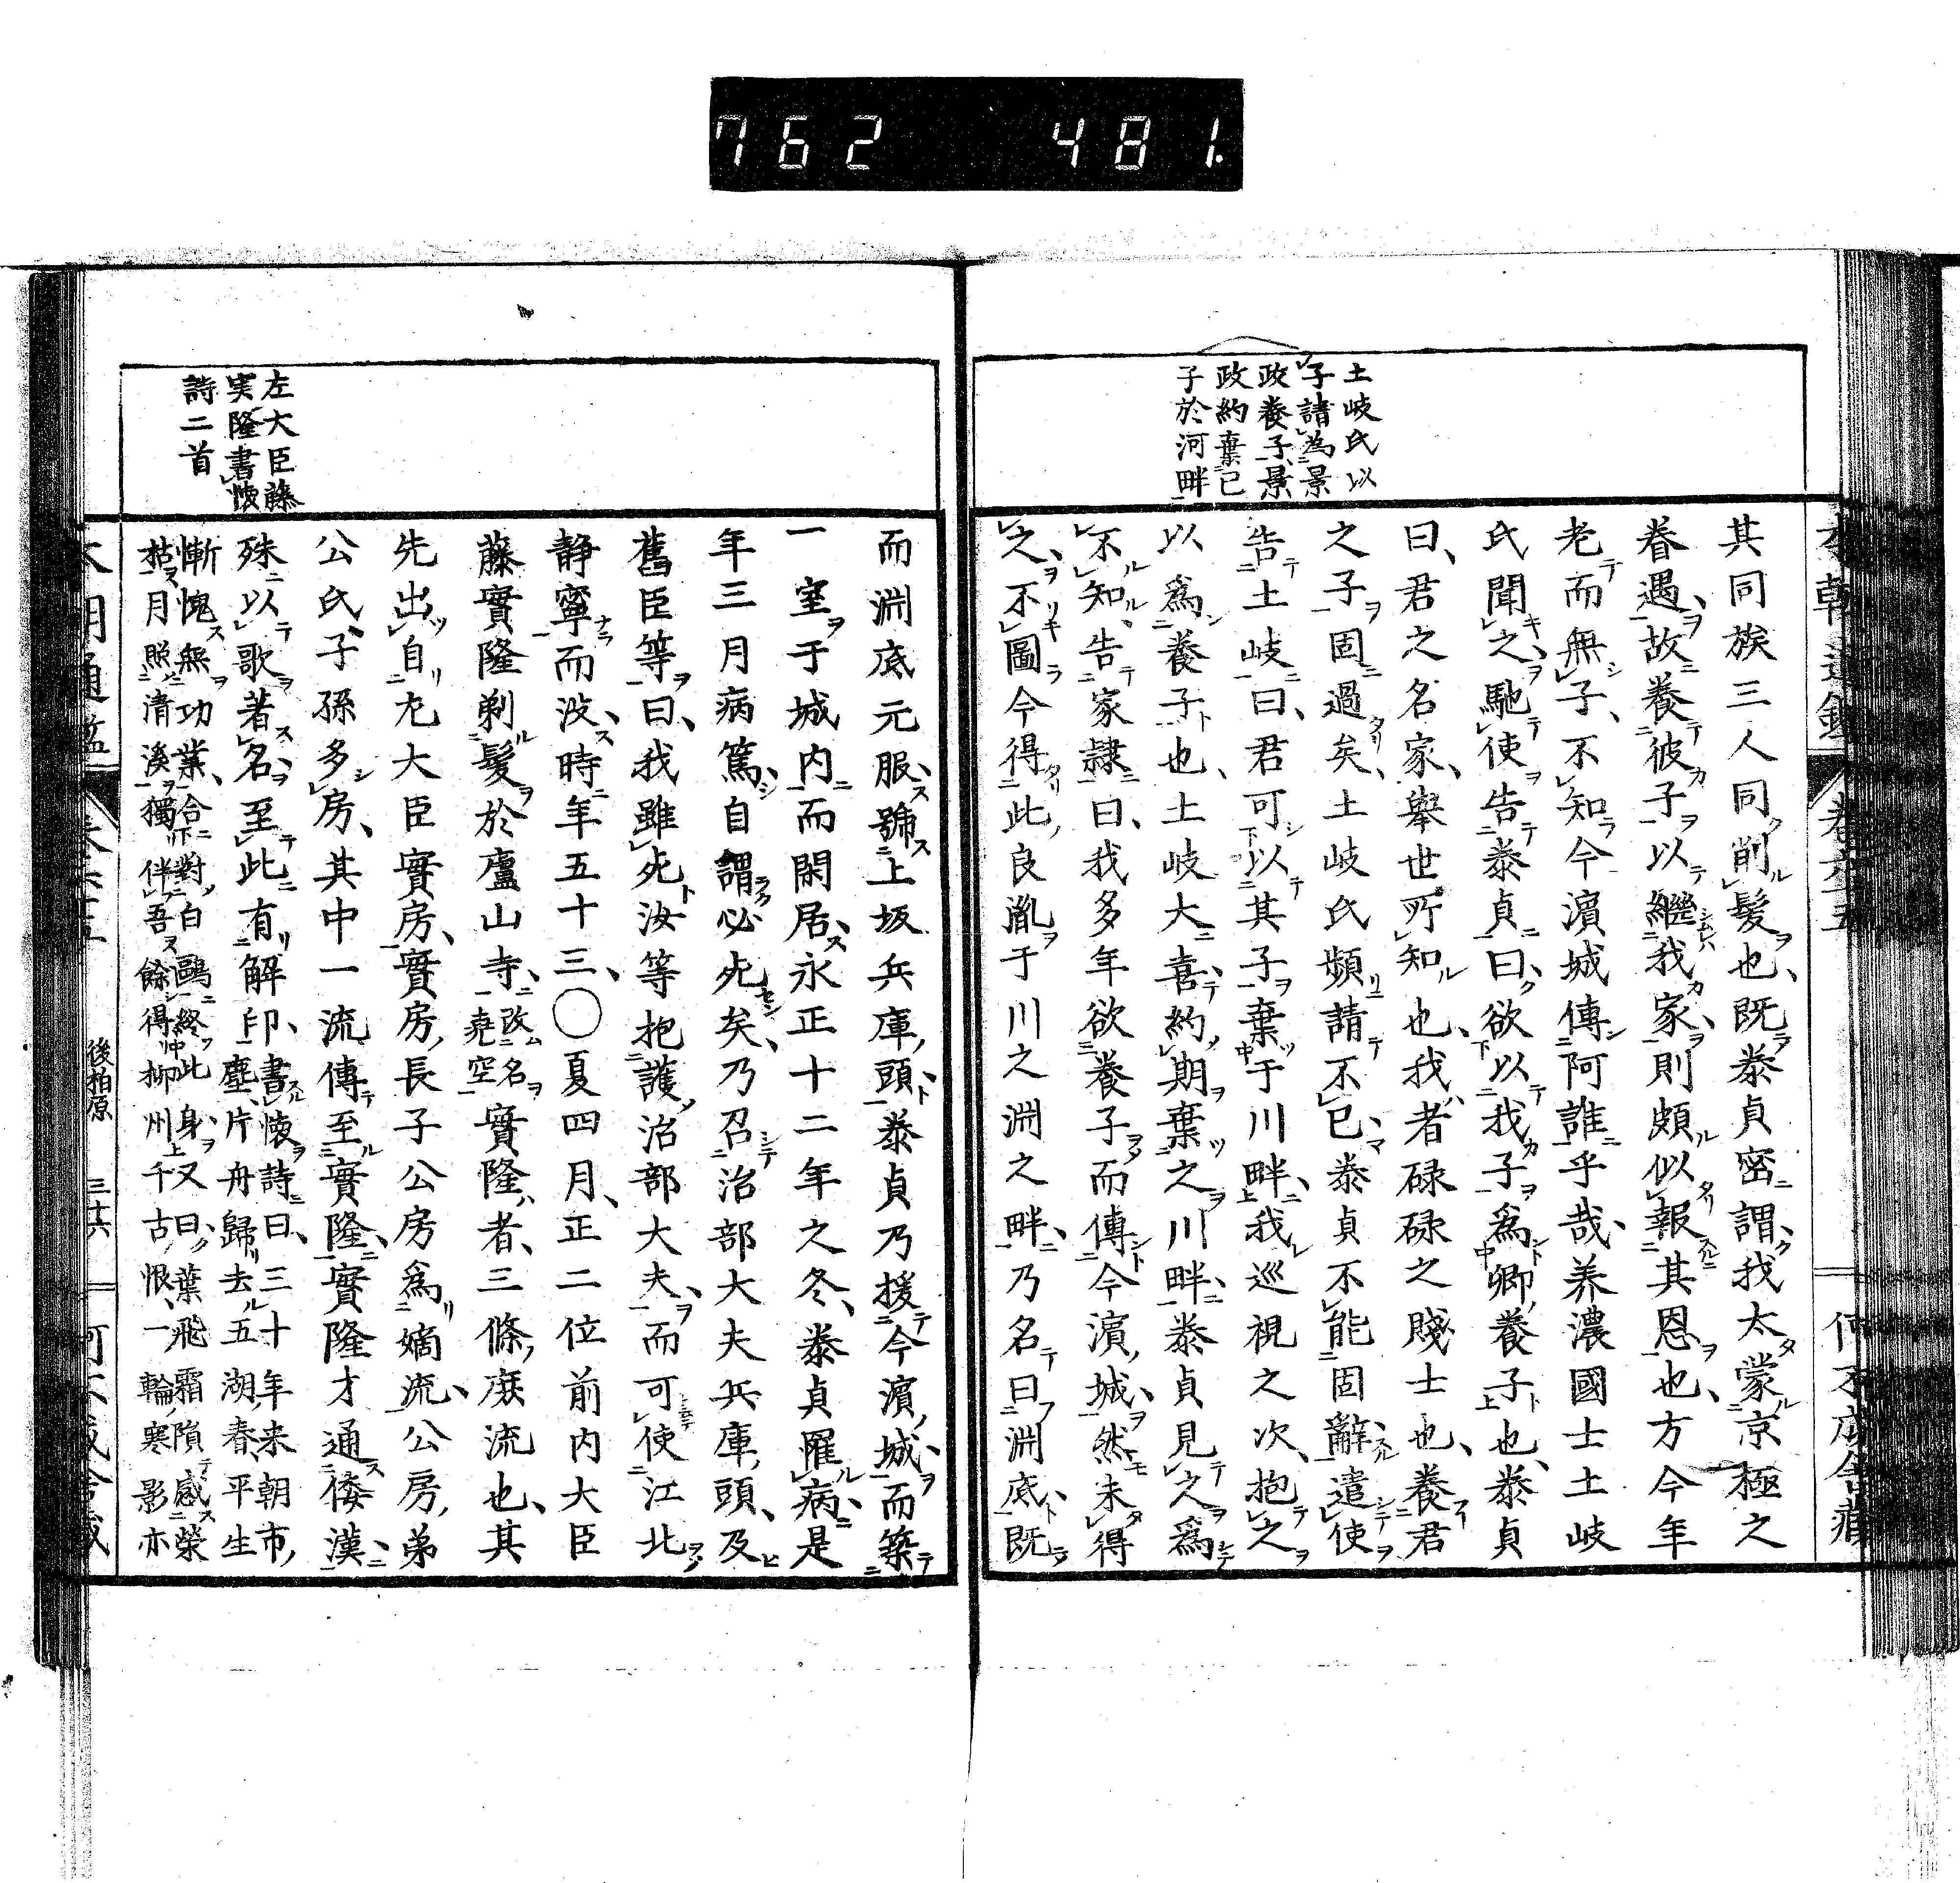 762 481.
土岐氏以
子請為景
政養子景
政約棄己
子於河畔
其同族三人同削髮也既泰貞密謂我太蒙京極之
眷遇故養彼子以繼我家則頗似報其恩也方今年
老而無子不知今濵城傳阿誰乎哉养濃國士土岐
氏聞之馳使告泰貞曰欲以我子爲卿養子也泰貞
曰君之名家舉世所知也我者碌碌之賤士也養君
之子固過矣土岐氏頻請不已泰貞不能固辭遣使
告土岐曰君可以其子棄于川畔我巡視之次抱之
以爲養子也土岐大喜約期棄之川畔泰貞見之爲
不知告家隷曰我多年欲養子而傳今濵城然未得
之不圖今得此良胤于川之淵之畔乃名曰淵底既
而淵底元服號上坂兵庫頭泰貞乃援今濵城而築
一室于城内而閑居永正十二年之冬泰貞罹病是
年三月病篤自謂必死矣乃召治部大夫兵庫頭及
舊臣等曰我雖死汝等抱護治部大夫而可使江北
静寧而沒時年五十三〇夏四月正二位前内大臣
藤實隆剃髮於廬山寺改名堯空實隆者三條庶流也其
先出自尤大臣實房實房長子公房爲嫡流公房弟
公氏子孫多房其中一流傳至實隆實隆才通倭漢
殊以歌著名至此有解印書懐詩曰三十年来朝市塵片舟歸去五湖春平生
慚愧無功業合對白鷗終此身又曰葉飛霜隕感榮
枯月照清溪獨伴吾餘得柳州千古恨一輪寒影亦
左大臣藤
実隆書懐
詩二首
後柏原 三十六